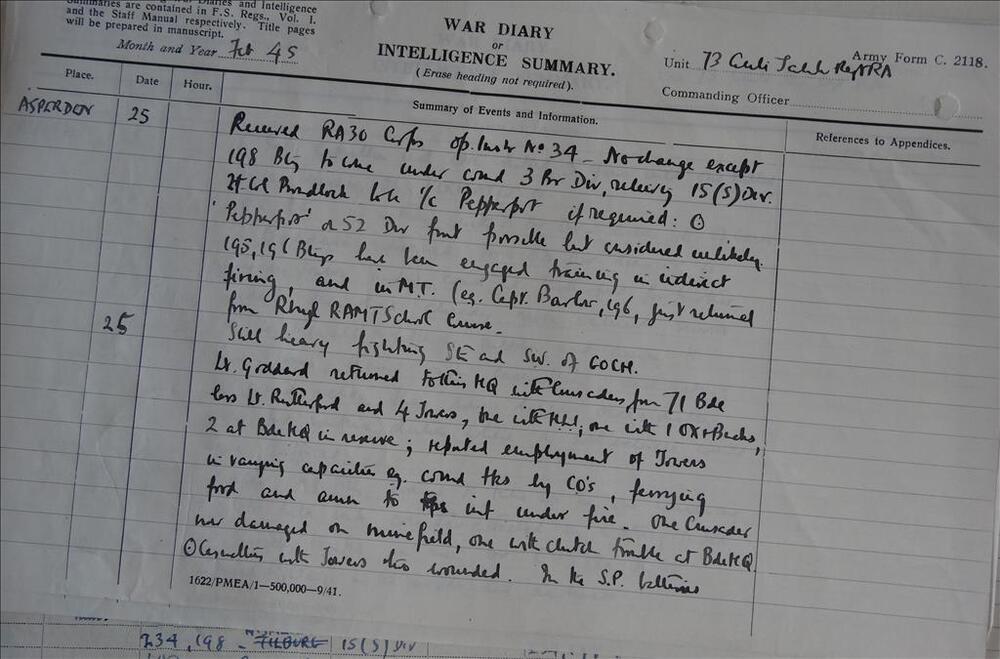 Diaries and Intelligence
Summaries are contained in F.S. Regs., Vol. I.
and the Staff Manual respectively. Title pages
will be prepared in manuscript.
Month and Year Feb 45
WAR DIARY
or
INTELLIGENCE SUMMARY.
(Erase heading not required).
Army Form C. 2118.
Unit 73 RA
Commanding Officer
Place.
Date
Hour.
Summary of Events and Information.
References to Appendices.
ASPERDEN 25 Received RA 30 Corps op. Instr No 34 - No change except
198 Bty to come under comd 3 Br Div, relieving 15(S) Div.
Lt Col to be i/c Pepperpot if required: ⊙
'Pepperpot' on 52 Div front possible but considered unlikely.
195, 196 Btys have been engaged training in indirect
firing, and in M.T. (eg. Capt. Barlow, 196, just returned
from Rhyl RAMT School Course.
25 Still heavy fighting SE and SW. of GOCH.
Lt. Goddard returned to this HQ with Crusaders from 71 Bde
less Lt. Rutherford and 4 Towers, one with HLI, one with 1 OX & Bucks,
2 at Bde HQ in reserve; reported employment of Towers
in varying capacities eg. comd tks by CO's, ferrying
food and amn to inf under fire. One Crusader
now damaged on minefield, one with clutch trouble at Bde HQ
⊙ Casualties with Towers two wounded. In the S.P. batteries
1622/PMEA/1—500,000—9/41.
234, 198 - TILBURG 15(S) DIV